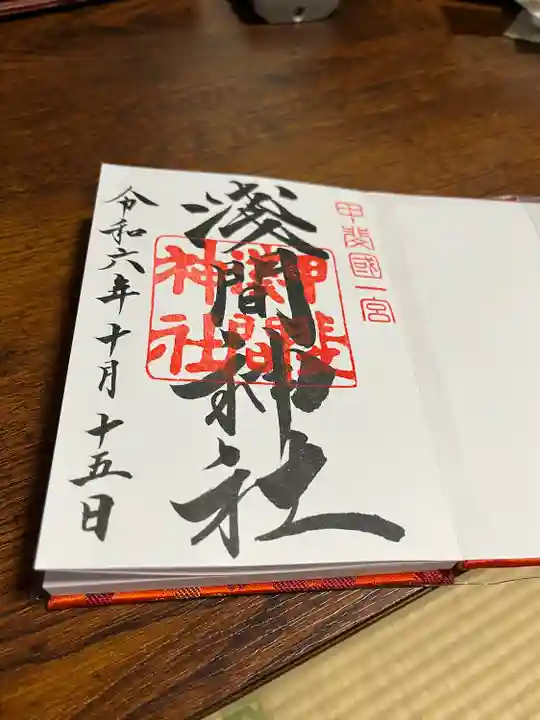 甲斐國一宮
淺間神社
甲斐淺間神社
令和六年十月十五日